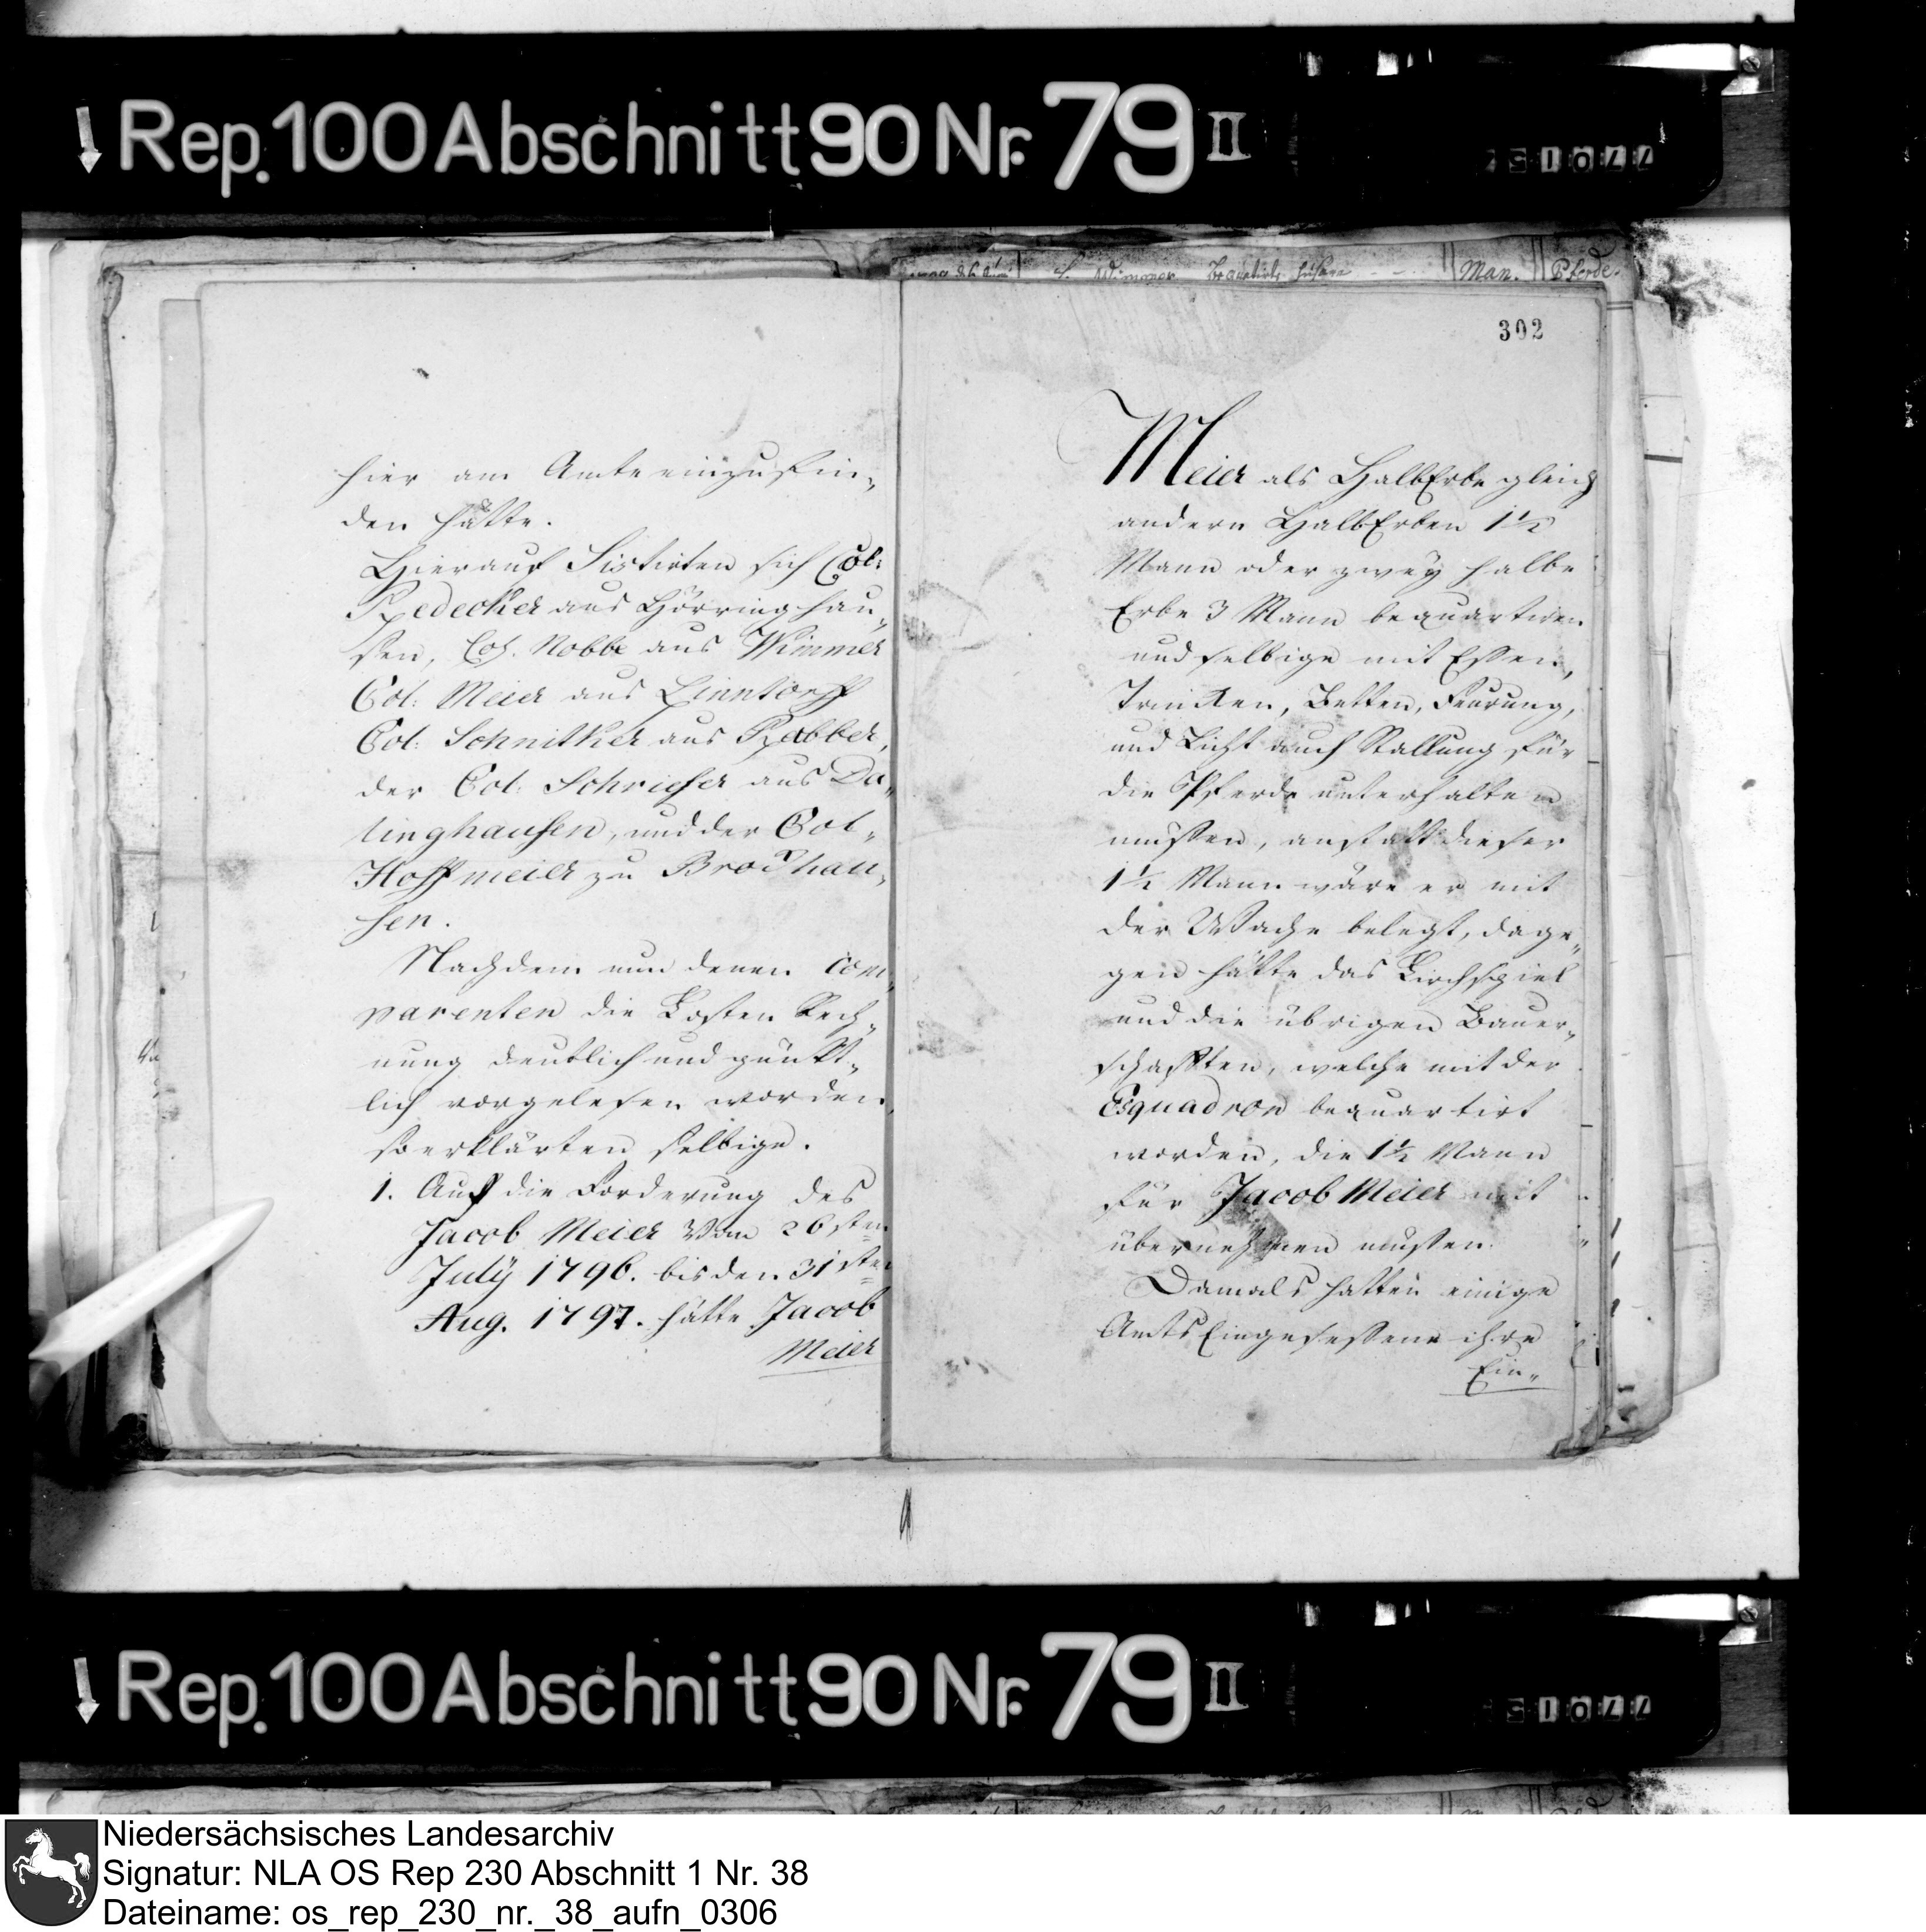 Rep. 100 Abschnitt 90 Nr. 79 II
Man. Pferde.
hier am Amte einzufin„
den hätte.
Hierauf Sistirten sich Col:
Redecker aus Hörringhau„
sen, Col. Nobbe aus Wimmer
Col: Meier aus Linntorff
Col: Schnitker aus Rabber,
der Col: Schriefer aus Da„
linghausen, und der Col„
Hoffmeier zu Brockhau„
sen.
Nachdem nun denen Com„
parenten die Kosten Rech„
nung deutlich und pünkt„
lich vorgelesen worden,
so erklärten selbige.
1. Auf die Forderung des
Jacob Meier Vom 26sten
July 1796. bis den 31sten
Aug. 1797. hätte Jacob
Meier
302
Meier als HalbErbe gleich
andern HalbErben 1½
Mann oder zwey halbe
Erbe 3 Mann bequartiren
und selbige mit Essen,
Trinken, Betten, Feurung,
und Licht auch Stallung für
die Pferde unterhalten
mussen, anstatt dieser
1½ Mann wäre er mit
der Wache belegt, dage„
gen hätte das Kirchspiel
und die übrigen Bauer„
schafften, welche mit der
Esquadron bequartirt
worden, die 1½ Mann
für Jacob Meier mit
übernehmen mussen.
Damals hatten einige
Amts Eingesessene ihre
Ein„
Rep. 100 Abschnitt 90 Nr. 79 II
Niedersächsisches Landesarchiv
Signatur: NLA OS Rep 230 Abschnitt 1 Nr. 38
Dateiname: os_rep_230_nr._38_aufn_0306